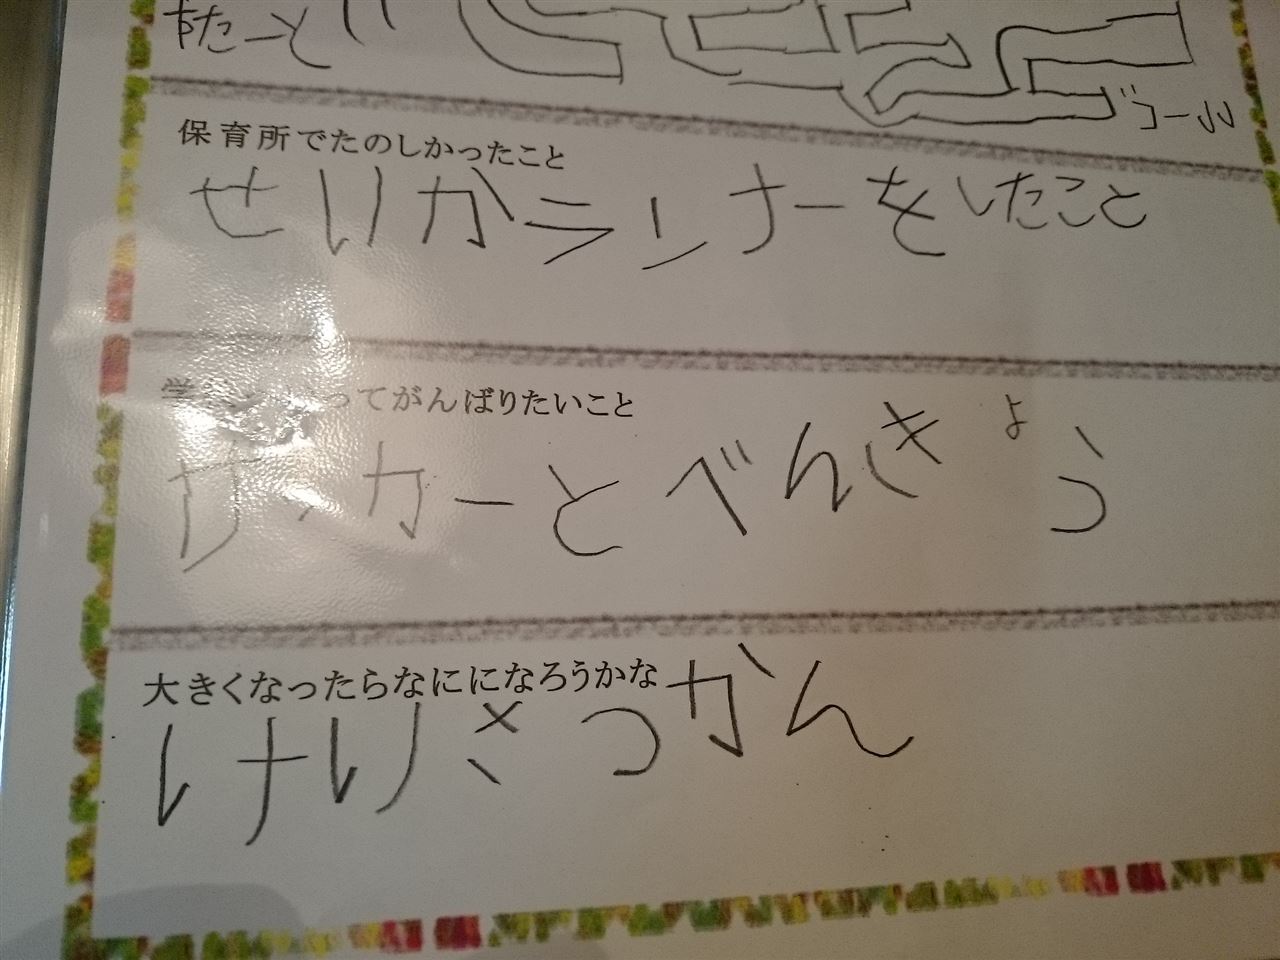 すたーと
ゴール
保育所でたのしかったこと
せいかランナーをしたこと
ってがんばりたいこと
サッカーとべんきょう
大きくなったらなにになろうかな
けいさつかん